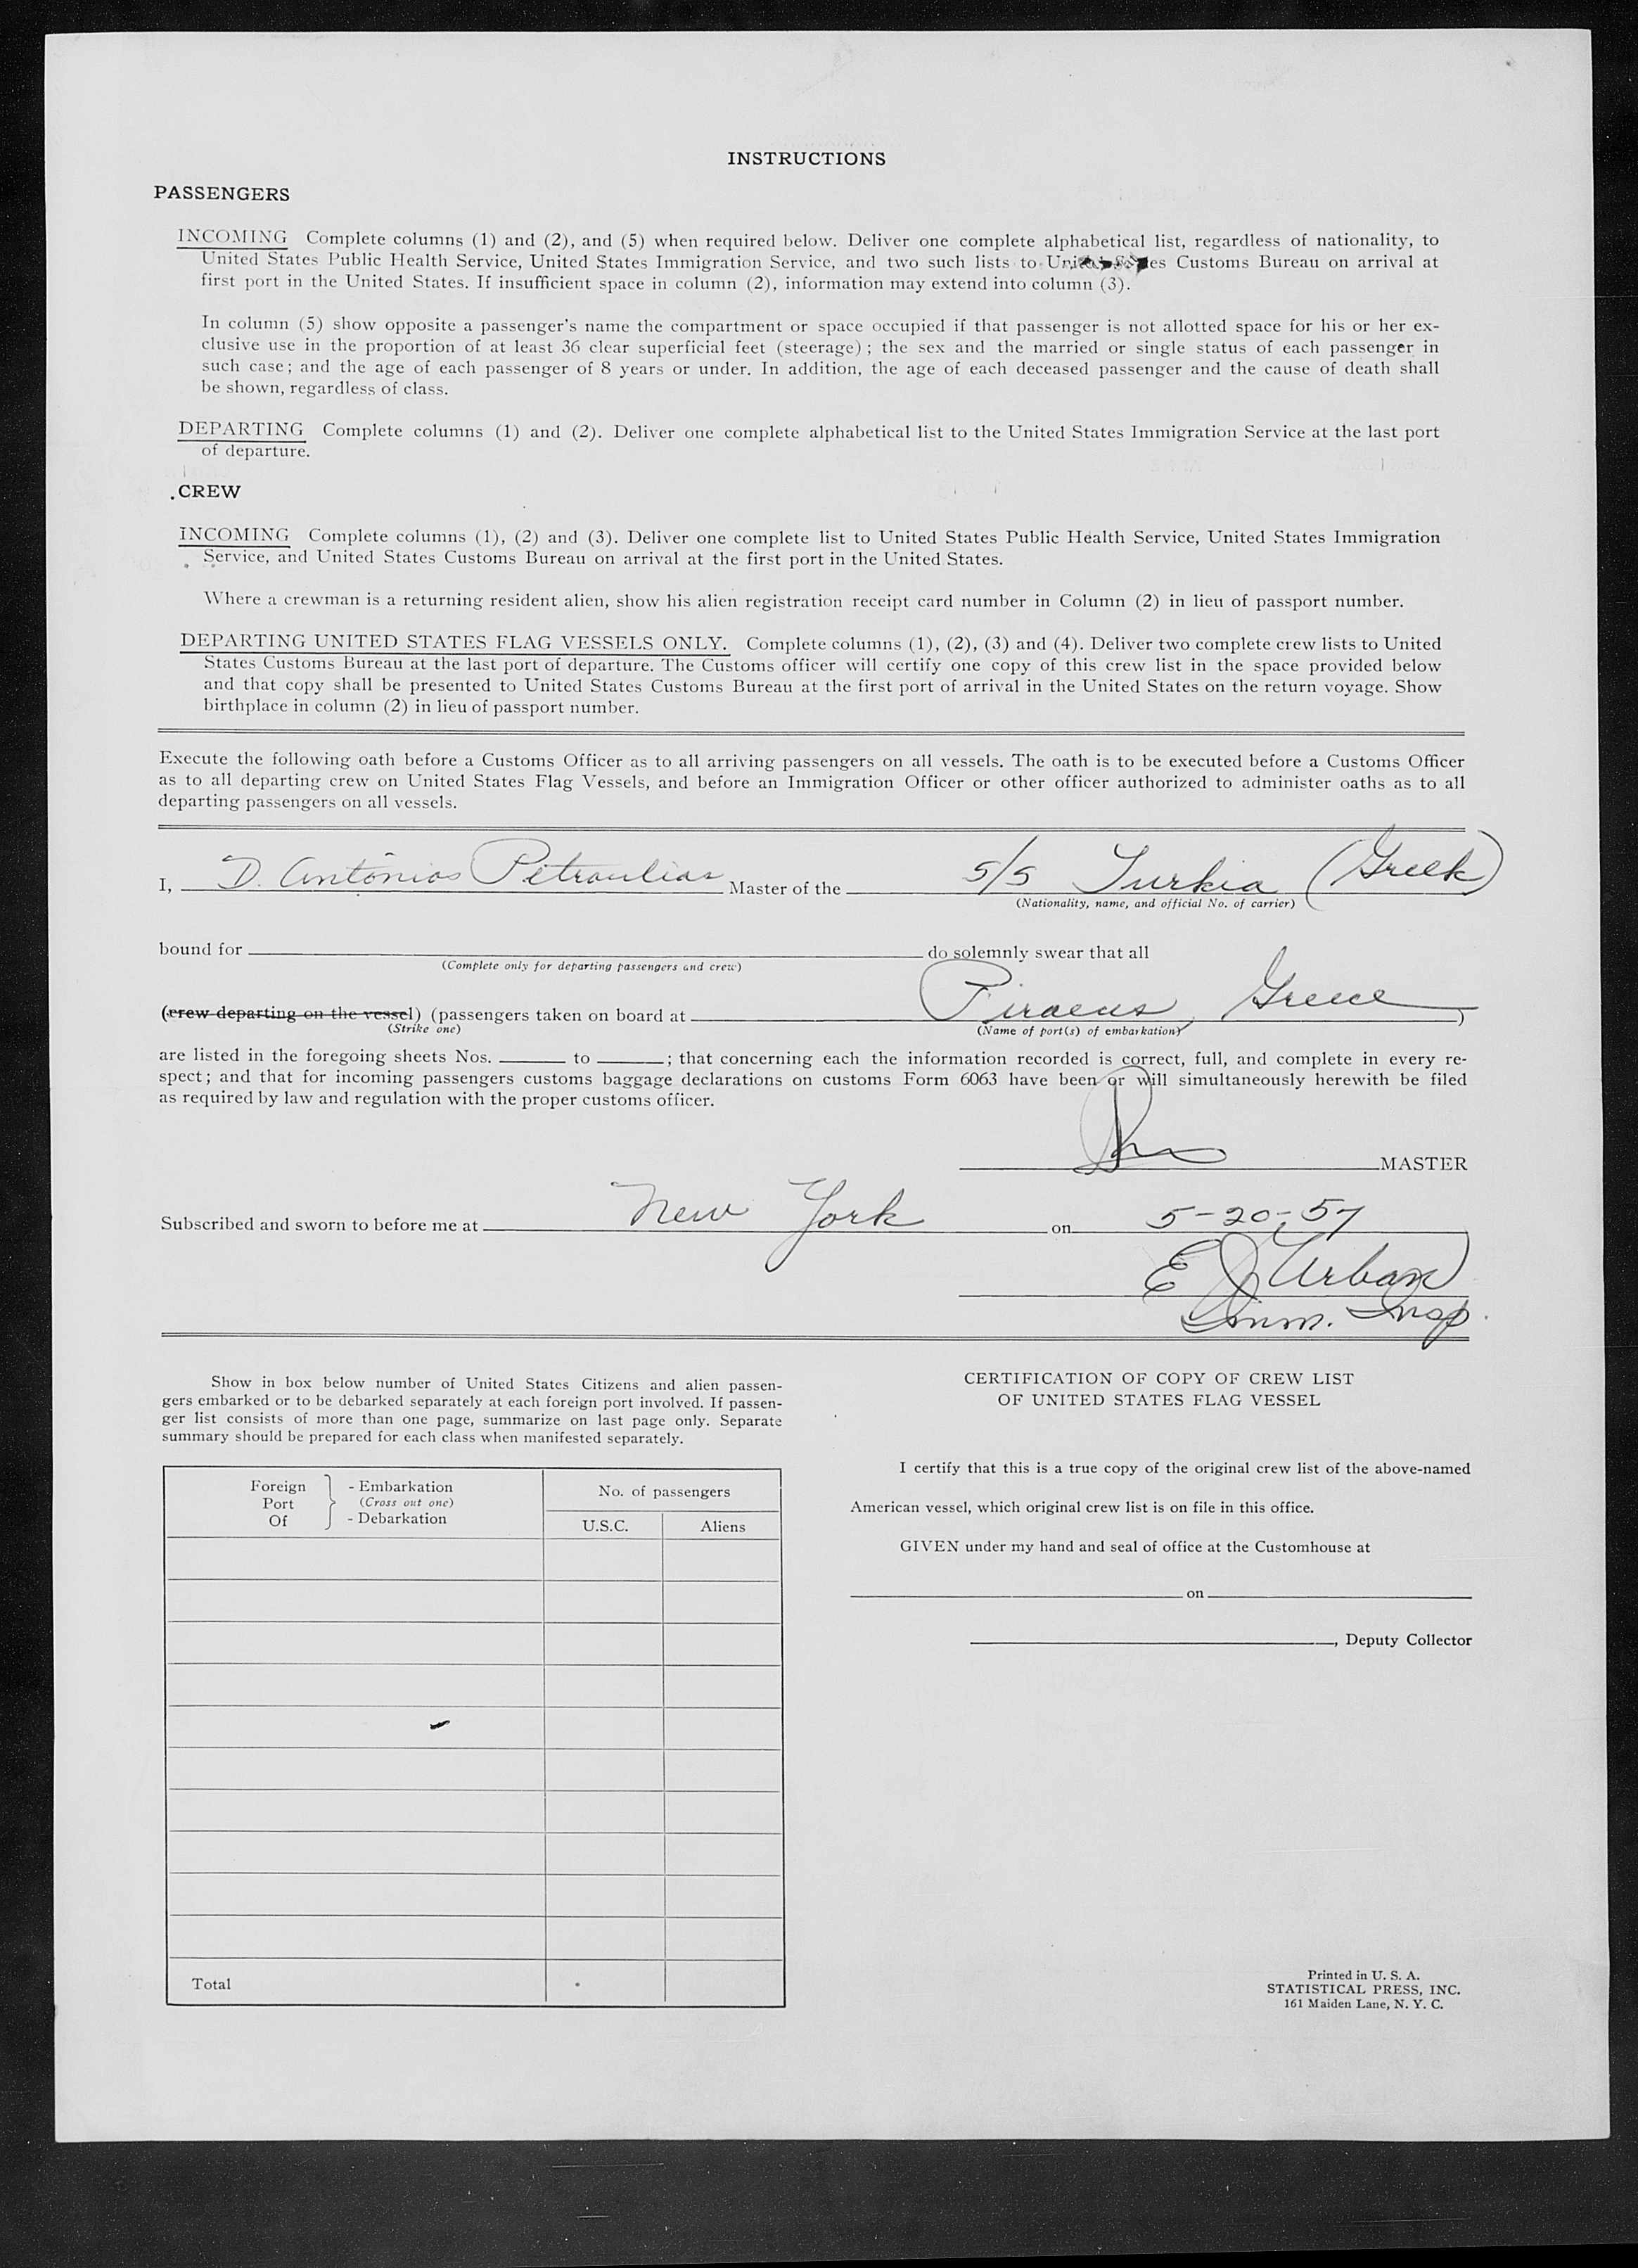 INSTRUCTIONS
PASSENGERS
INCOMING Complete columns (1) and (2), and (5) when required below. Deliver one complete alphabetical list, regardless of nationality, to
United States Public Health Service, United States Immigration Service, and two such lists to United States Customs Bureau on arrival at
first port in the United States. If insufficient space in column (2), information may extend into column (3).
In column (5) show opposite a passenger's name the compartment or space occupied if that passenger is not allotted space for his or her ex-
clusive use in the proportion of at least 36 clear superficial feet (steerage); the sex and the married or single status of each passenger in
such case; and the age of each passenger of 8 years or under. In addition, the age of each deceased passenger and the cause of death shall
be shown, regardless of class.
DEPARTING Complete columns (1) and (2). Deliver one complete alphabetical list to the United States Immigration Service at the last port
of departure.
CREW
INCOMING Complete columns (1), (2) and (3). Deliver one complete list to United States Public Health Service, United States Immigration
Service, and United States Customs Bureau on arrival at the first port in the United States.
Where a crewman is a returning resident alien, show his alien registration receipt card number in Column (2) in lieu of passport number.
DEPARTING UNITED STATES FLAG VESSELS ONLY. Complete columns (1), (2), (3) and (4). Deliver two complete crew lists to United
States Customs Bureau at the last port of departure. The Customs officer will certify one copy of this crew list in the space provided below
and that copy shall be presented to United States Customs Bureau at the first port of arrival in the United States on the return voyage. Show
birthplace in column (2) in lieu of passport number.
Execute the following oath before a Customs Officer as to all arriving passengers on all vessels. The oath is to be executed before a Customs Officer
as to all departing crew on United States Flag Vessels, and before an Immigration Officer or other officer authorized to administer oaths as to all
departing passengers on all vessels.
I, D. Antonios Petroulias Master of the S/S Turkia (Greek)
(Nationality, name, and official No. of carrier)
bound for do solemnly swear that all
(Complete only for departing passengers and crew)
(crew departing on the vessel) (passengers taken on board at Piraeus, Greece)
(Strike one) (Name of port(s) of embarkation)
are listed in the foregoing sheets Nos. to ; that concerning each the information recorded is correct, full, and complete in every re-
spect; and that for incoming passengers customs baggage declarations on customs Form 6063 have been or will simultaneously herewith be filed
as required by law and regulation with the proper customs officer.
MASTER
Subscribed and sworn to before me at New York on 5-20-57
E J Urban
Imm. Insp.
Show in box below number of United States Citizens and alien passen-
gers embarked or to be debarked separately at each foreign port involved. If passen-
ger list consists of more than one page, summarize on last page only. Separate
summary should be prepared for each class when manifested separately.
Foreign Port Of
- Embarkation
(Cross out one)
- Debarkation
No. of passengers
U.S.C. Aliens
Total
CERTIFICATION OF COPY OF CREW LIST
OF UNITED STATES FLAG VESSEL
I certify that this is a true copy of the original crew list of the above-named
American vessel, which original crew list is on file in this office.
GIVEN under my hand and seal of office at the Customhouse at
on
, Deputy Collector
Printed in U. S. A.
STATISTICAL PRESS, INC.
161 Maiden Lane, N. Y. C.